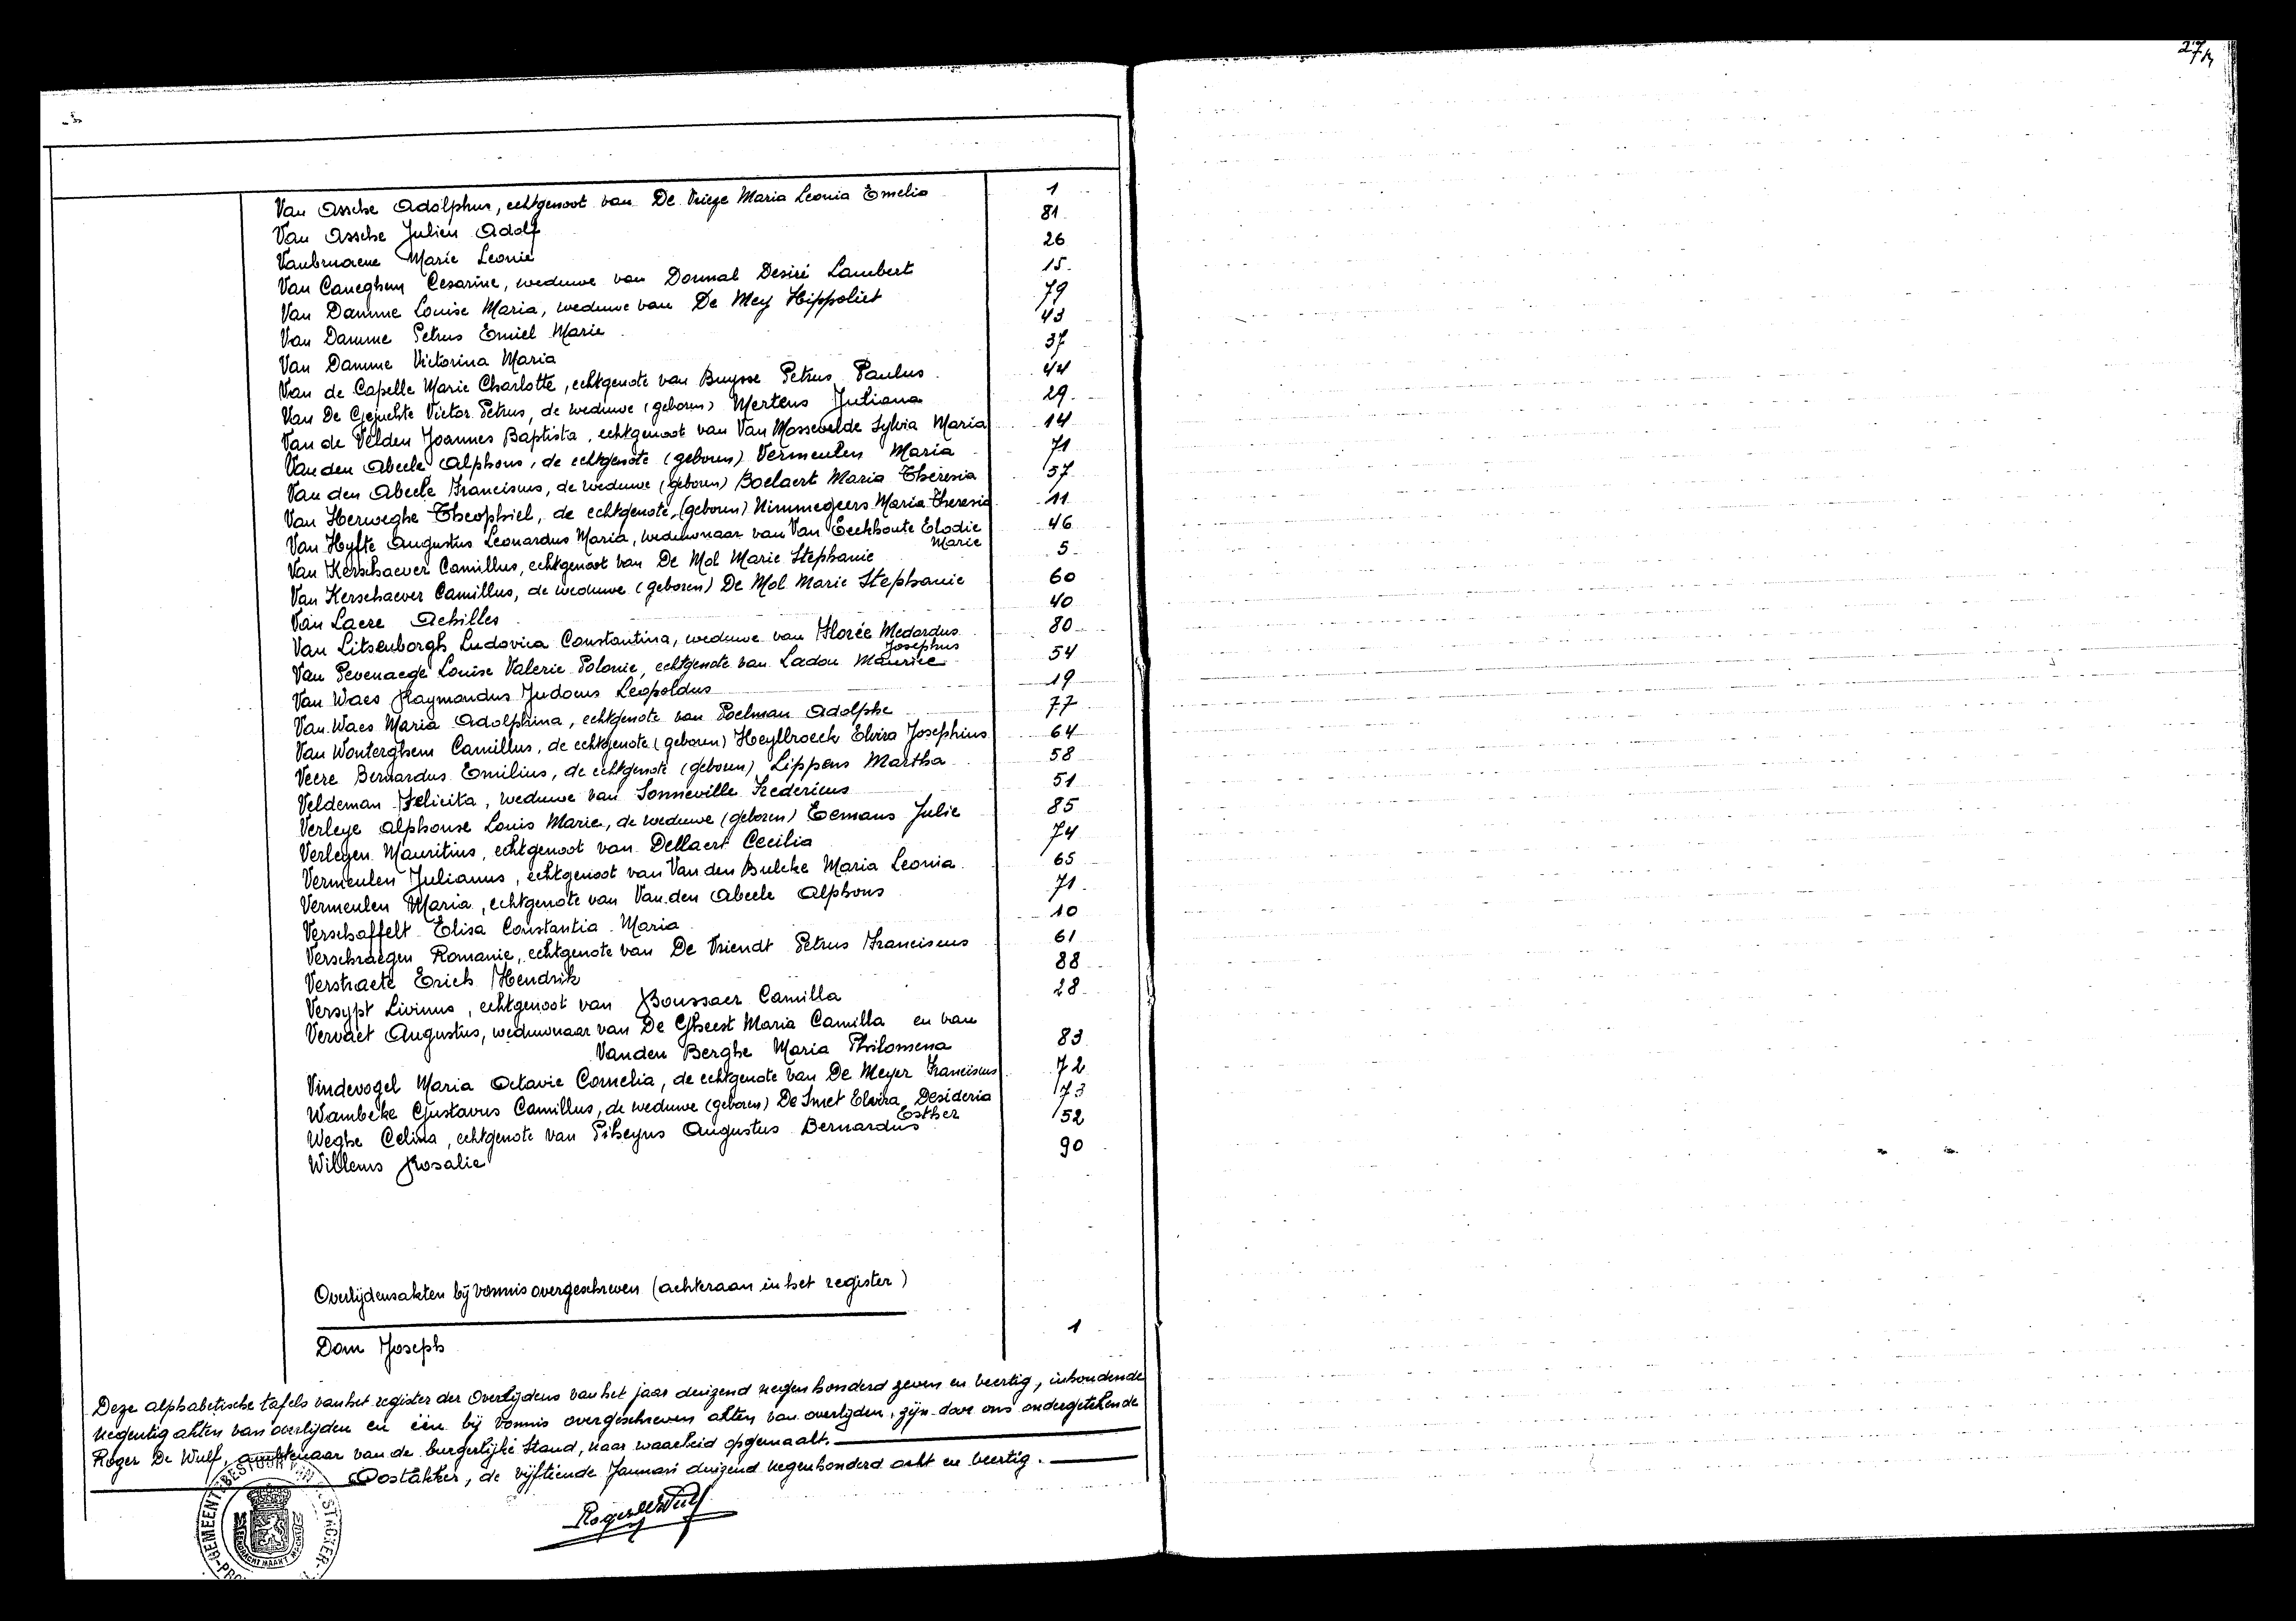 27
Van Assche Adolphus, echtgenoot van De Vriege Maria Leonia Emelia 1
Van Assche Julien Adolf 81
Vanbruaene Marie Leonie 26
Van Caneghem Cesarine, weduwe van Donnal Desiré Lambert 15
Van Damme Louise Maria, weduwe van De Mey Hippoliet 79
Van Damme Petrus Emiel Marie 43
Van Damme Victorina Maria 37
Van de Capelle Marie Charlotte, echtgenote van Buysse Petrus Paulus 44
Van De Gejuchte Victor Petrus, de weduwe (geboren) Mertens Juliana 29
Van de Velden Joannes Baptista, echtgenoot van Van Mossevelde Sylvia Maria 14
Van den Abeele Alphons, de echtgenote (geboren) Vermeulen Maria 71
Van den Abeele Franciscus, de weduwe (geboren) Boelaert Maria Theresia 57
Van Herweghe Theophiel, de echtgenote (geboren) Nimmegeers Maria Theresia 11
Van Hyfte Augustus Leonardus Maria, weduwnaar van Van Eeckhoute Elodie Marie 46
Van Kerschaever Camillus, echtgenoot van De Mol Marie Stephanie 5
Van Kerschaever Camillus, de weduwe (geboren) De Mol Marie Stephanie 60
Van Laere Achilles 40
Van Litsenborgh Ludovica Constantina, weduwe van Florée Medardus Josephus 80
Van Pevenaege Louise Valerie Polonie, echtgenote van Ladou Maurice 54
Van Waes Raymondus Judocus Leopoldus 19
Van Waes Maria Adolphina, echtgenote van Poelman Adolphe 77
Van Wonterghem Camillus, de echtgenote (geboren) Heylbroeck Elvira Josephius 64
Veere Bernardus Emilius, de echtgenote (geboren) Lippens Martha 58
Veldeman Felicita, weduwe van Sonneville Fredericus 51
Verleye Alphonse Louis Marie, de weduwe (geboren) Eemans Julie 85
Verleyen Mauritius, echtgenoot van Dellaert Cecilia 74
Vermeulen Julianus, echtgenoot van Van den Bulcke Maria Leonia 65
Vermeulen Maria, echtgenote van Van den Abeele Alphons 71
Verschaffelt Elisa Constantia Maria 10
Verschraegen Romanie, echtgenote van De Vriendt Petrus Franciscus 61
Verstraete Erich Hendrik 88
Versypt Livinus, echtgenoot van Boussaer Camilla 28
Vervaet Augustus, weduwnaar van De Gheest Maria Camilla en van
Vanden Berghe Maria Philomena 83
Vindevogel Maria Octavie Cornelia, de echtgenote van De Meyer Franciscus 72
Wambeke Gustavus Camillus, de weduwe (geboren) De Smet Elvira Desideria Esther 73
Weghe Celina, echtgenote van Piheyns Augustus Bernardus 52
Willems Rosalie 90
Overlijdensakten bij vonnis overgeschreven (achteraan in het register)
Dom Joseph 1
Deze alphabetische tafels van het register der Overlijdens van het jaar duizend negen honderd zeven en veertig, inhoudende
negentig akten van overlijden en één bij vonnis overgeschreven akten van overlijden, zijn door ons ondergetekende
Roger De Wulf, ambtenaar van de burgerlijke stand, naar waarheid opgemaakt.
Oostakker, de vijftiende Januari duizend negenhonderd acht en veertig.
Roger De Wulf
GEMEENTEBESTUUR VAN
EENDRACHT MAAKT MACHT